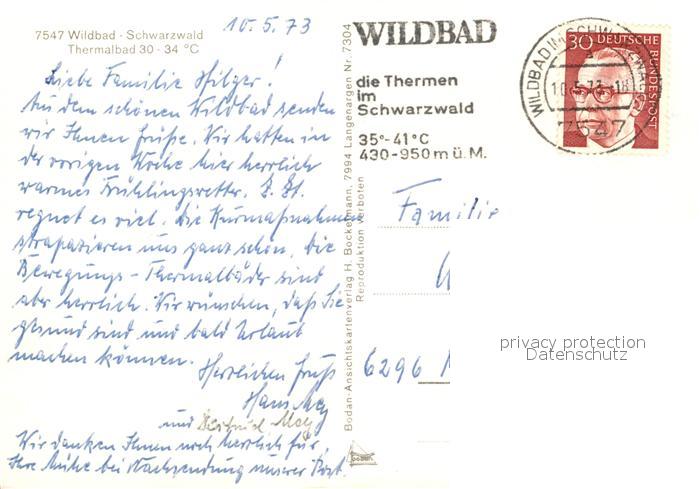 10.5.73
7547 Wildbad - Schwarzwald
Thermalbad 30 - 34 °C
Liebe Familie Hilger!
Aus dem schönen Wildbad senden
wir Ihnen Grüße. Wir hatten in
der vorigen Woche hier herrlich
warmes Frühlingswetter. Z. Zt.
regnet es viel. Die Kurmaßnahmen
strapazieren uns ganz schön. Die
Bewegungs-Thermalbäder sind
aber herrlich. Wir wünschen, daß Sie
gesund sind und bald Urlaub
machen können.
Herzlichen Gruß
Hans Mey
und Mey
Wir danken Ihnen noch herzlich für
Ihre Mühe bei Nachsendung unserer Post.
Bodan-Ansichtskartenverlag H. Bockelmann, 7994 Langenargen Nr. 7304
Reproduktion verboten
bodan
WILDBAD
die Thermen
im
Schwarzwald
35°-41°C
430-950m ü. M.
WILDBAD IM SCHWARZWALD
a
10.5.73-18
7547
30 DEUTSCHE
BUNDESPOST
Familie
6296
privacy protection
Datenschutz